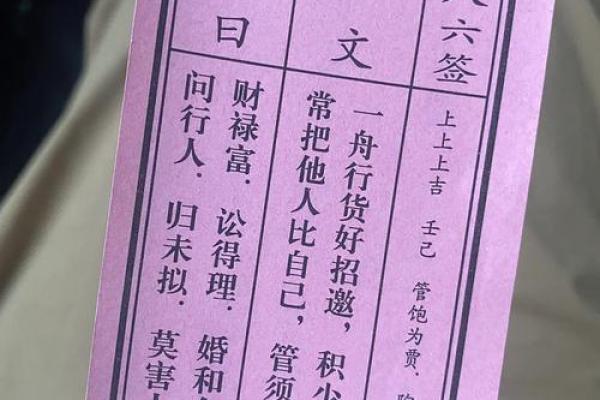 六签
上上上吉 壬己 管饱为贾.
文
一舟行货好招邀，积少
常把他人比自己，管须
曰
财禄富. 讼得理. 婚和
问行人. 归未拟. 莫害